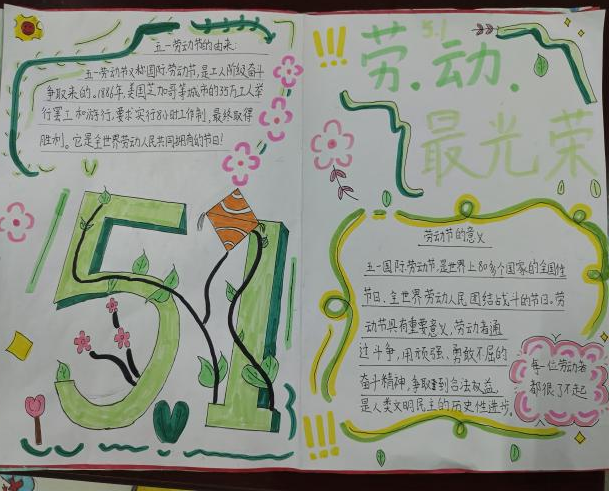 五一劳动节的由来
五一劳动节又称国际劳动节,是工人阶级奋斗
争取来的。1886年,美国芝加哥等城市的35万工人举
行罢工和游行,要求实行8小时工作制,最终取得
胜利。它是全世界劳动人民共同拥有的节日!
51
!!!
5.1
劳.动.
最光荣
劳动节的意义
五一国际劳动节,是世界上80多个国家的全国性
节日。全世界劳动人民团结战斗的节日。劳
动节具有重要意义,劳动者通
过斗争,用顽强、勇敢不屈的
奋斗精神,争取到合法权益,
是人类文明民主的历史性进步。
每一位劳动者
都很了不起
!!!